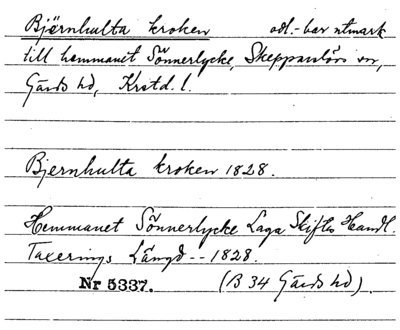 Bjørnhulta kroken odl.-bar utmark
till hemmanet Sönnerlycke, Skeppslövs sn,
Gärds hd, Krstd. l.
Bjernhulta kroken 1828.
Hemmanet Sönnerlycke Laga Skiftes Handl.
Taxerings Längd -- 1828.
Nr 5337. (B 34 Gärds hd).